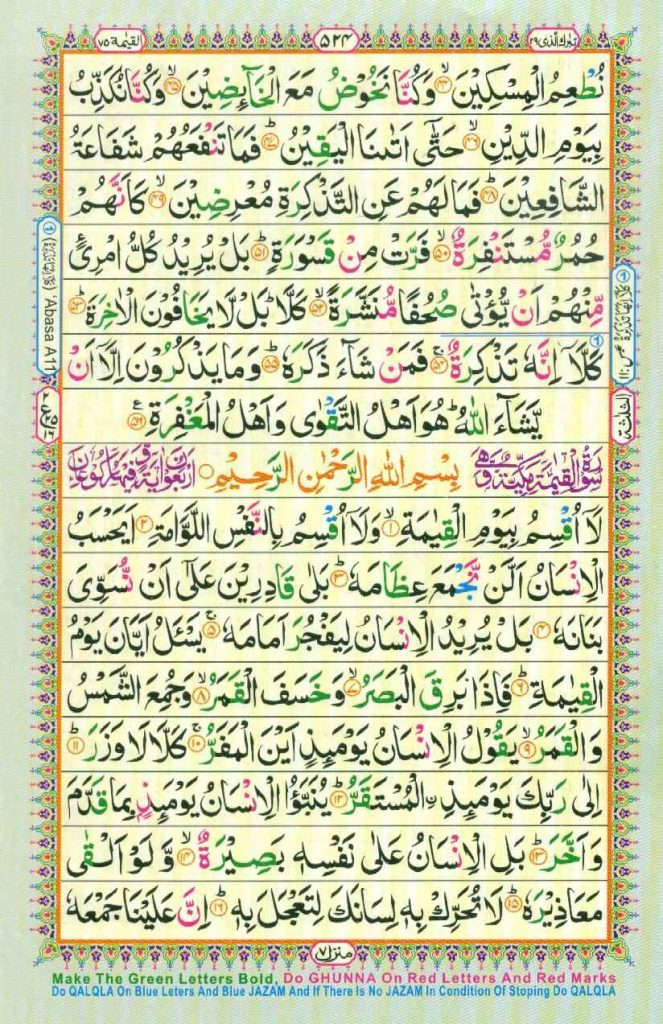 تبٰرك الذی ٢٩
٥٢٤
القیٰمة ٧٥
نُطْعِمُ الْمِسْكِیْنَ ۙ﴿٤٤﴾ وَكُنَّا نَخُوْضُ مَعَ الْخَآىِٕضِیْنَ ۙ﴿٤٥﴾ وَكُنَّا نُكَذِّبُ
بِیَوْمِ الدِّیْنِ ۙ﴿٤٦﴾ حَتّٰۤی اَتٰىنَا الْیَقِیْنُ ؕ﴿٤٧﴾ فَمَا تَنْفَعُهُمْ شَفَاعَةُ
الشَّافِعِیْنَ ؕ﴿٤٨﴾ فَمَا لَهُمْ عَنِ التَّذْكِرَةِ مُعْرِضِیْنَ ۙ﴿٤٩﴾ كَاَنَّهُمْ
حُمُرٌ مُّسْتَنْفِرَةٌ ۙ﴿٥٠﴾ فَرَّتْ مِنْ قَسْوَرَةٍ ؕ﴿٥١﴾ بَلْ یُرِیْدُ كُلُّ امْرِئٍ
مِّنْهُمْ اَنْ یُّؤْتٰی صُحُفًا مُّنَشَّرَةً ۙ﴿٥٢﴾ كَلَّا ؕ بَلْ لَّا یَخَافُوْنَ الْاٰخِرَةَ ؕ﴿٥٣﴾
كَلَّاۤ اِنَّهٗ تَذْكِرَةٌ ۚ﴿٥٤﴾ فَمَنْ شَآءَ ذَكَرَهٗ ؕ﴿٥٥﴾ وَمَا یَذْكُرُوْنَ اِلَّاۤ اَنْ
یَّشَآءَ اللّٰهُ ؕ هُوَ اَهْلُ التَّقْوٰی وَاَهْلُ الْمَغْفِرَةِ ﴿٥٦﴾
سُوْرَةُ الْقِیٰمَةِ مَكِّیَّةٌ وَّهِیَ بِسْمِ اللّٰهِ الرَّحْمٰنِ الرَّحِیْمِ ○ اَرْبَعُوْنَ اٰیَةً وَّفِیْهَا رُكُوْعَانِ
لَاۤ اُقْسِمُ بِیَوْمِ الْقِیٰمَةِ ۙ﴿١﴾ وَلَاۤ اُقْسِمُ بِالنَّفْسِ اللَّوَّامَةِ ؕ﴿٢﴾ اَیَحْسَبُ
الْاِنْسَانُ اَلَّنْ نَّجْمَعَ عِظَامَهٗ ؕ﴿٣﴾ بَلٰی قَادِرِیْنَ عَلٰۤی اَنْ نُّسَوِّیَ
بَنَانَهٗ ﴿٤﴾ بَلْ یُرِیْدُ الْاِنْسَانُ لِیَفْجُرَ اَمَامَهٗ ۚ﴿٥﴾ یَسْـَٔلُ اَیَّانَ یَوْمُ
الْقِیٰمَةِ ؕ﴿٦﴾ فَاِذَا بَرِقَ الْبَصَرُ ۙ﴿٧﴾ وَخَسَفَ الْقَمَرُ ۙ﴿٨﴾ وَجُمِعَ الشَّمْسُ
وَالْقَمَرُ ۙ﴿٩﴾ یَقُوْلُ الْاِنْسَانُ یَوْمَىِٕذٍ اَیْنَ الْمَفَرُّ ۚ﴿١٠﴾ كَلَّا لَا وَزَرَ ؕ﴿١١﴾
اِلٰی رَبِّكَ یَوْمَىِٕذِ ِ۟الْمُسْتَقَرُّ ؕ﴿١٢﴾ یُنَبَّؤُا الْاِنْسَانُ یَوْمَىِٕذٍۭ بِمَا قَدَّمَ
وَاَخَّرَ ؕ﴿١٣﴾ بَلِ الْاِنْسَانُ عَلٰی نَفْسِهٖ بَصِیْرَةٌ ۙ﴿١٤﴾ وَّلَوْ اَلْقٰی
مَعَاذِیْرَهٗ ؕ﴿١٥﴾ لَا تُحَرِّكْ بِهٖ لِسَانَكَ لِتَعْجَلَ بِهٖ ؕ﴿١٦﴾ اِنَّ عَلَیْنَا جَمْعَهٗ
منزل ٧
Make The Green Letters Bold, Do GHUNNA On Red Letters And Red Marks
Do QALQLA On Blue Leters And Blue JAZAM And If There Is No JAZAM In Condition Of Stoping Do QALQLA
'Abasa A11
الثلاثة